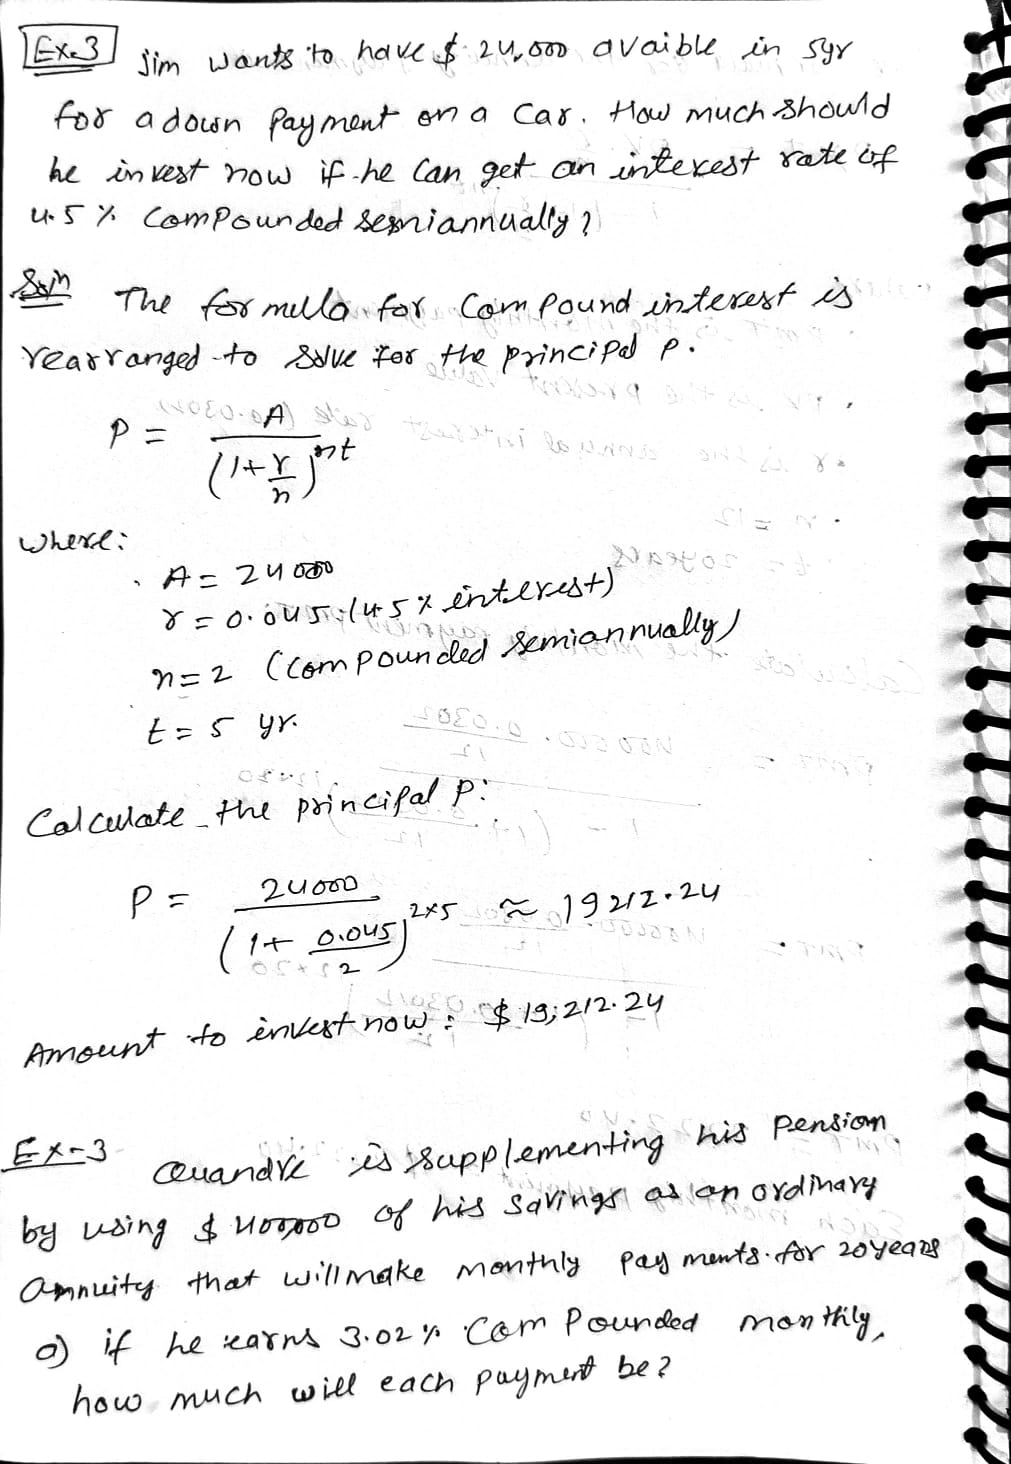 Ex.3 Jim wants to have $ 24,000 avaible in 5yr
for a down payment on a Car. How much should
he invest now if he Can get an interest rate of
4.5 % Compounded semiannually?
Soln The formulla for Compound interest is
rearranged to Solve for the principal P.
P = A / (1+ r/n)^nt
where:
. A = 24000
r = 0.045 (4.5 % interest)
n = 2 (Compounded semiannually)
t = 5 yr.
Calculate the principal P:
P = 24000 / (1 + 0.045/2)^2x5 ≈ 19212.24
Amount to invest now : $ 19,212.24
Ex-3 is supplementing his pension
by using $ 400,000 of his Savings as an ordinary
annuity that will make monthly payments for 20 years
a) if he earns 3.02 % Compounded monthily,
how much will each payment be?